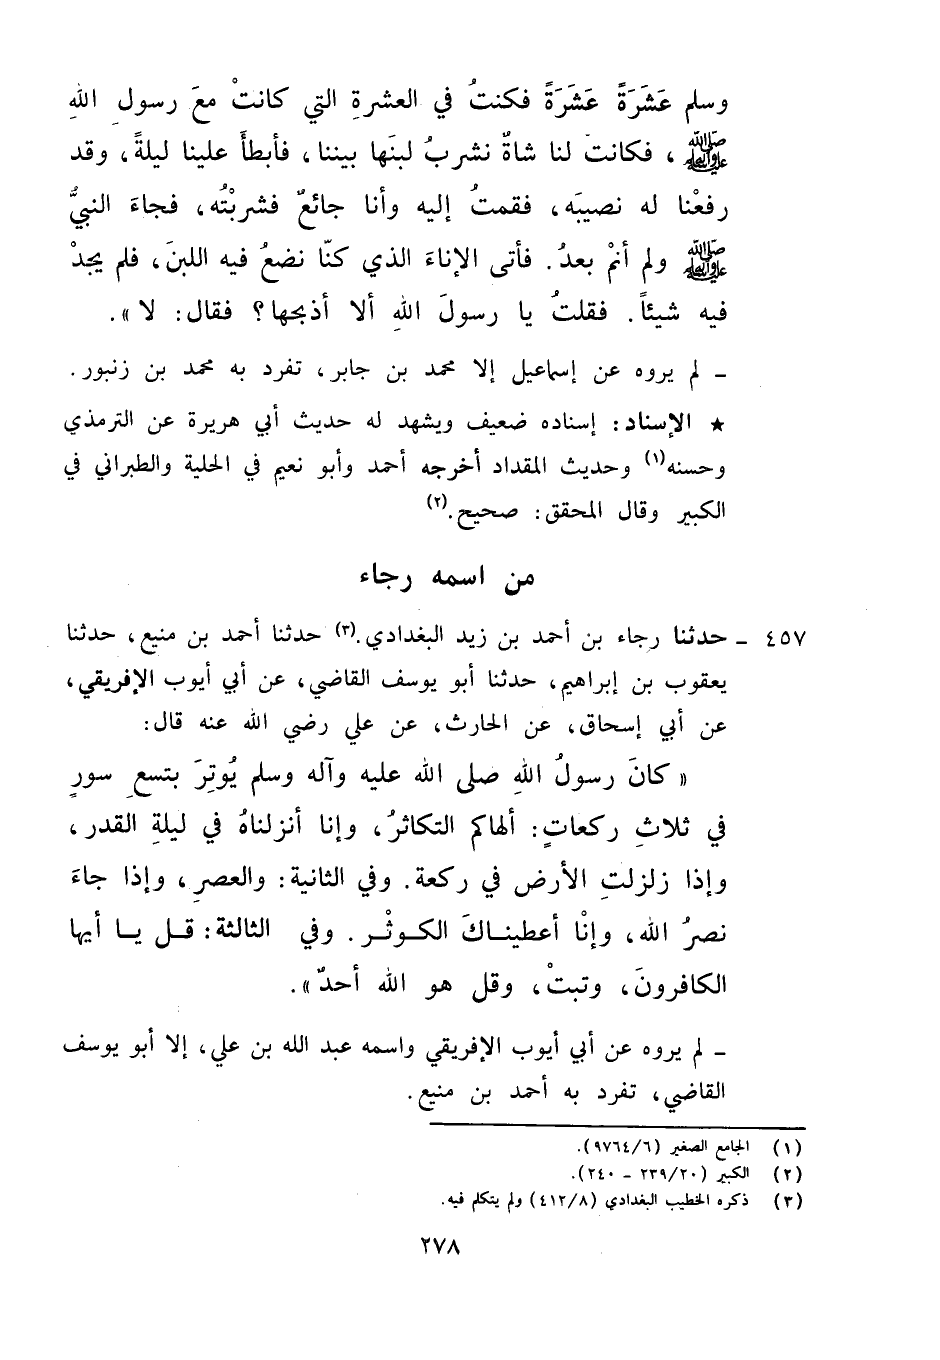 وسلم عَشَرَةً عَشَرَةً فكنتُ في العشرةِ التي كانتْ معَ رسولِ اللهِ
ﷺ ، فكانت لنا شاةٌ نشربُ لبنَها بيننا، فأبطأَ علينا ليلةً، وقد
رفعْنا له نصيبَه، فقمتُ إليه وأنا جائعٌ فشربْتُه، فجاءَ النبيُّ
ﷺ ولم أنمْ بعدُ. فأتى الإناءَ الذي كنّا نضعُ فيه اللبنَ، فلم يجدْ
فيه شيئاً. فقلتُ يا رسولَ اللهِ ألا أذبحها؟ فقال: لا».
ـ لم يروه عن إسماعيل إلا محمد بن جابر، تفرد به محمد بن زنبور.
★ الإسناد: إسناده ضعيف ويشهد له حديث أبي هريرة عن الترمذي
وحسنه(١) وحديث المقداد أخرجه أحمد وأبو نعيم في الحلية والطبراني في
الكبير وقال المحقق: صحيح.(٢)
من اسمه رجاء
٤٥٧ ـ حدثنا رجاء بن أحمد بن زيد البغدادي.(٣) حدثنا أحمد بن منيع، حدثنا
يعقوب بن إبراهيم، حدثنا أبو يوسف القاضي، عن أبي أيوب الإفريقي،
عن أبي إسحاق، عن الحارث، عن علي رضي الله عنه قال:
« كانَ رسولُ اللهِ صلى الله عليه وآله وسلم يُوتِرَ بتسعِ سورٍ
في ثلاثِ ركعاتٍ: ألهاكم التكاثرُ، وإنا أنزلناهُ في ليلةِ القدرِ،
وإذا زلزلتِ الأرضُ في ركعة. وفي الثانية: والعصرِ، وإذا جاءَ
نصرُ الله، وإنْا أعطينـاكَ الكـوثْـر. وفي الثالثة: قـل يـا أيها
الكافرونَ، وتبتْ، وقل هو الله أحدٌ».
ـ لم يروه عن أبي أيوب الإفريقي واسمه عبد الله بن علي، إلا أبو يوسف
القاضي، تفرد به أحمد بن منيع.
(١) الجامع الصغير (٩٧٦٤/٦).
(٢) الكبير (٢٣٩/٢٠ ـ ٢٤٠).
(٣) ذكره الخطيب البغدادي (٤١٢/٨) ولم يتكلم فيه.
٢٧٨